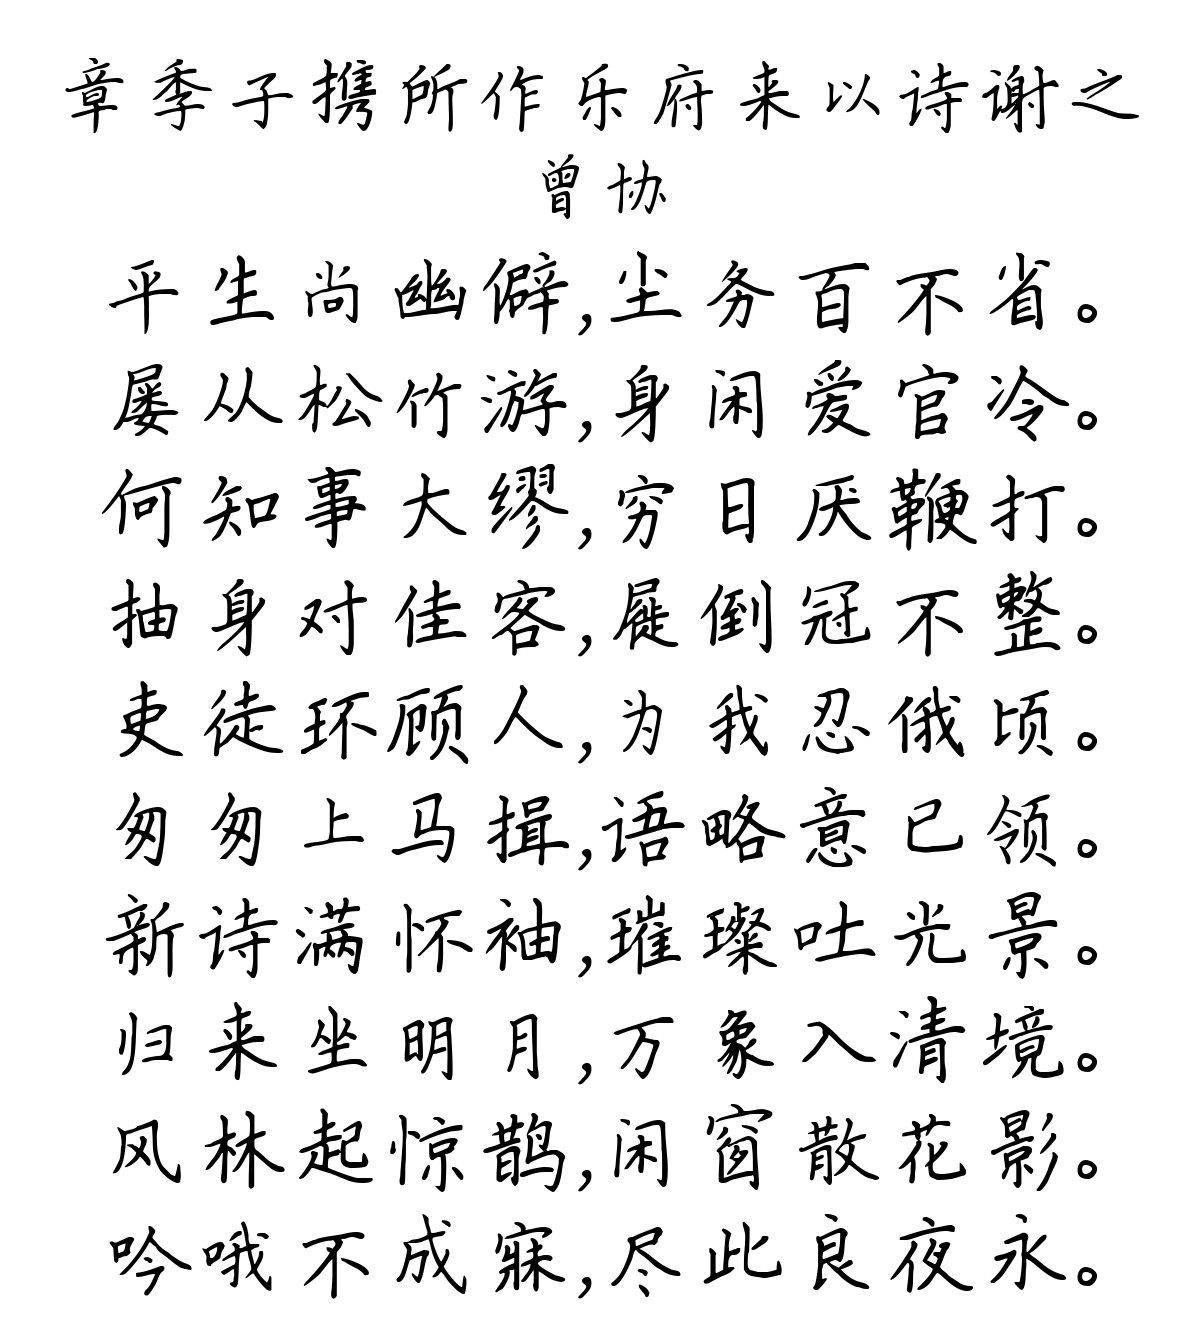 章季子携所作乐府来以诗谢之
曾协
平生尚幽僻,尘务百不省。
屡从松竹游,身闲爱官冷。
何知事大缪,穷日厌鞭打。
抽身对佳客,屣倒冠不整。
吏徒环顾人,为我忍俄顷。
匆匆上马揖,语略意已领。
新诗满怀袖,璀璨吐光景。
归来坐明月,万象入清境。
风林起惊鹊,闲窗散花影。
吟哦不成寐,尽此良夜永。